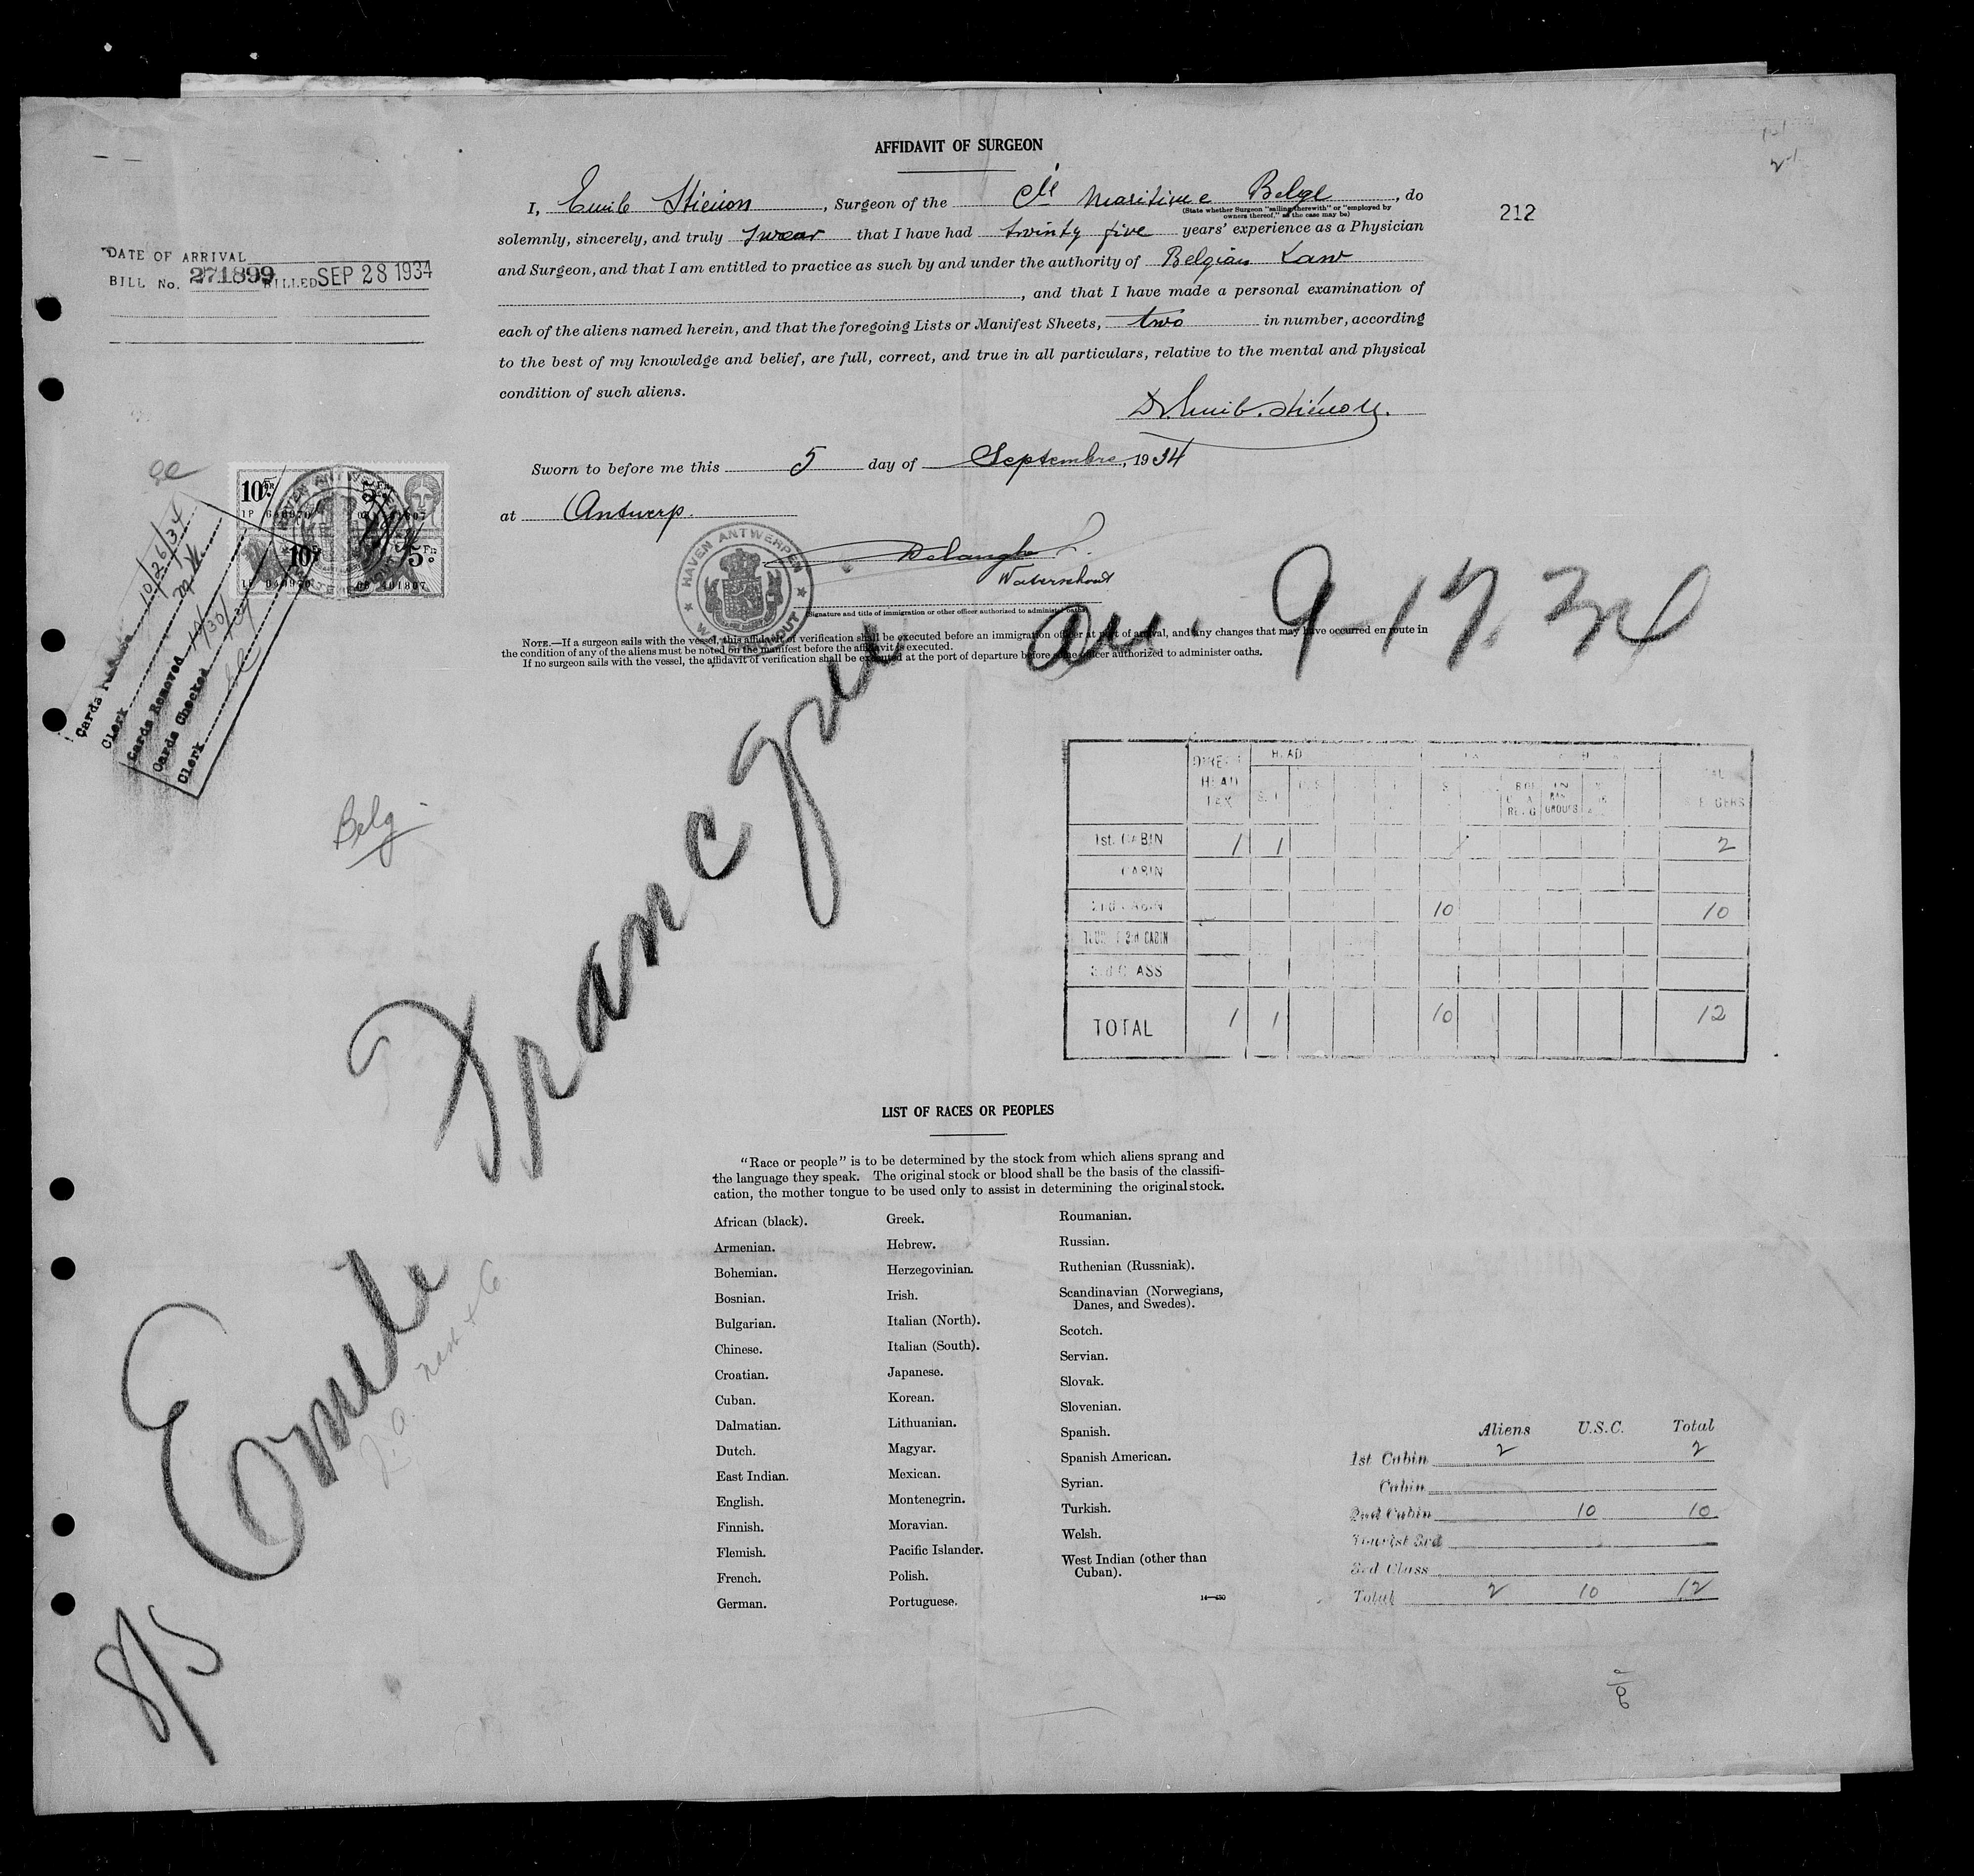 AFFIDAVIT OF SURGEON
I, Emile Stiénon, Surgeon of the Cie Maritime Belge, do
(State whether Surgeon "sailing therewith" or "employed by
owners thereof," as the case may be)
212
solemnly, sincerely, and truly swear that I have had twinty five years' experience as a Physician
and Surgeon, and that I am entitled to practice as such by and under the authority of Belgian Law
, and that I have made a personal examination of
each of the aliens named herein, and that the foregoing Lists or Manifest Sheets, two in number, according
to the best of my knowledge and belief, are full, correct, and true in all particulars, relative to the mental and physical
condition of such aliens.
Dr. Emile Stiénon.
DATE OF ARRIVAL
BILL No. 271899 BILLED SEP 28 1934
Sworn to before me this 5 day of Septembre, 1934
at Antwerp.
HAVEN ANTWERPEN
WATERSCHOUT
Waterschout
(Signature and title of immigration or other officer authorized to administer oaths)
NOTE.—If a surgeon sails with the vessel, this affidavit of verification shall be executed before an immigration officer at port of arrival, and any changes that may have occurred en route in
the condition of any of the aliens must be noted on the manifest before the affidavit is executed.
If no surgeon sails with the vessel, the affidavit of verification shall be executed at the port of departure before some officer authorized to administer oaths.
10 Fr
10
5 Fr
Cards 10/26/34
Clerk
Cards Removed 10/30/34
Cards Checked
Clerk
Arr. 9-17-34
Emile Francqui
Belg
8/5
DIRECT HEAD TAX
HEAD
1st. CABIN 1 1 2
CABIN
2nd CABIN 10 10
TOURIST 3rd CABIN
3rd CLASS
TOTAL 1 1 10 12
LIST OF RACES OR PEOPLES
"Race or people" is to be determined by the stock from which aliens sprang and
the language they speak. The original stock or blood shall be the basis of the classifi-
cation, the mother tongue to be used only to assist in determining the original stock.
African (black).
Armenian.
Bohemian.
Bosnian.
Bulgarian.
Chinese.
Croatian.
Cuban.
Dalmatian.
Dutch.
East Indian.
English.
Finnish.
Flemish.
French.
German.
Greek.
Hebrew.
Herzegovinian.
Irish.
Italian (North).
Italian (South).
Japanese.
Korean.
Lithuanian.
Magyar.
Mexican.
Montenegrin.
Moravian.
Pacific Islander.
Polish.
Portuguese.
Roumanian.
Russian.
Ruthenian (Russniak).
Scandinavian (Norwegians,
Danes, and Swedes).
Scotch.
Servian.
Slovak.
Slovenian.
Spanish.
Spanish American.
Syrian.
Turkish.
Welsh.
West Indian (other than
Cuban).
Aliens U.S.C. Total
1st Cabin 2 2
Cabin
2nd Cabin 10 10
Tourist 3rd
3rd Class
Total 2 10 12